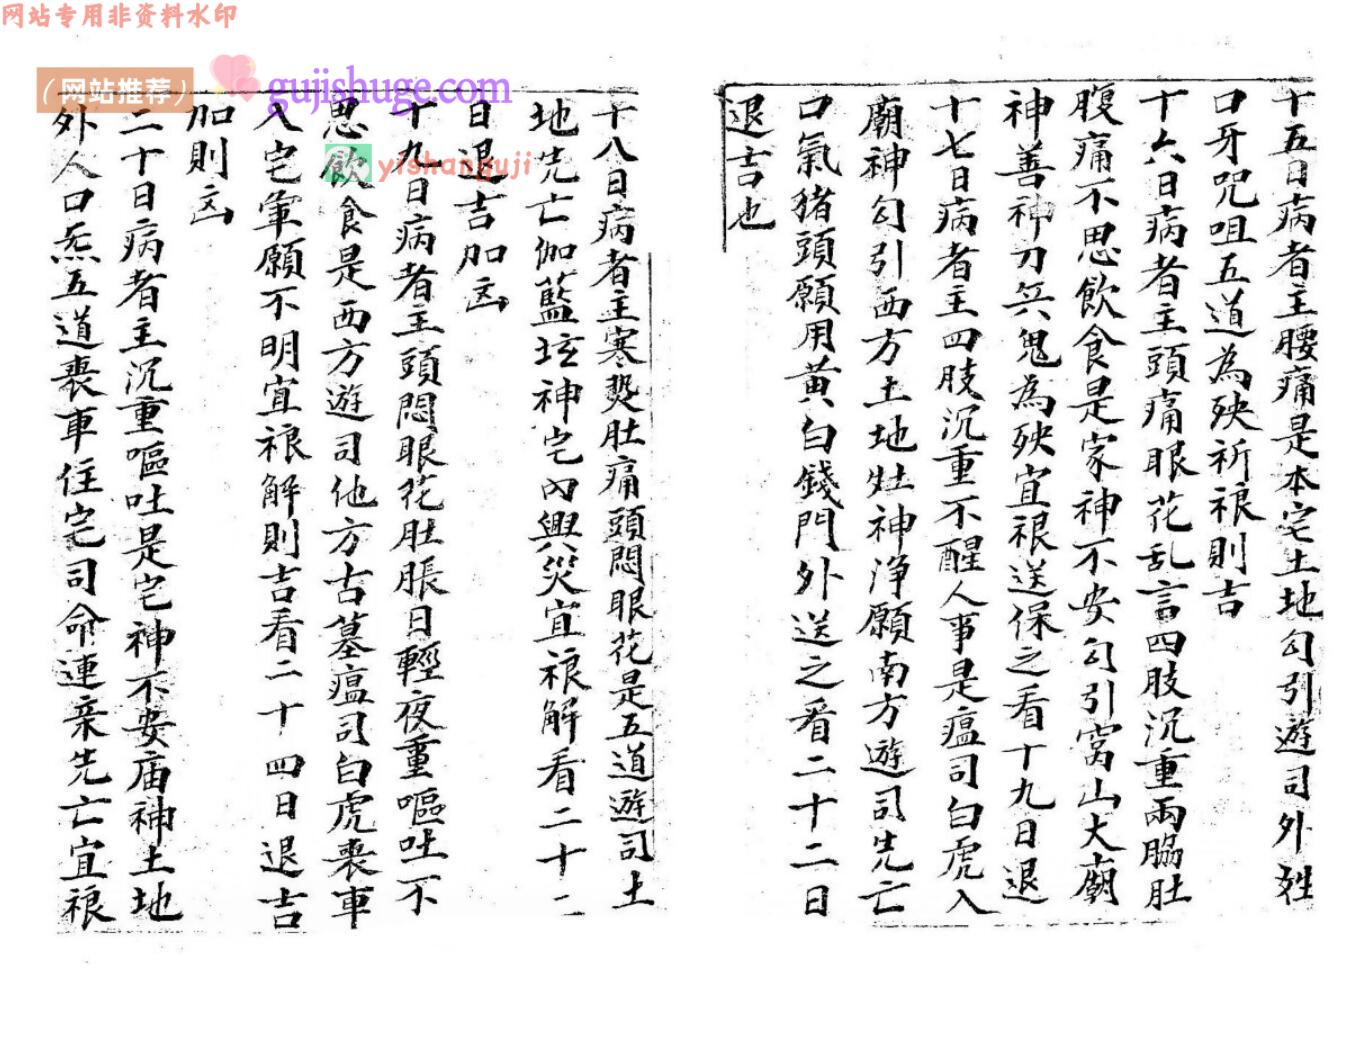 网站专用非资料水印
（网站推荐）
gujishuge.com
yishanguji
十五日病者主腰痛是本宅土地勾引遊司外姓
口牙咒咀五道為殃祈禳則吉
十六日病者主頭痛眼花乱言四肢沉重兩脇肚
腹痛不思飲食是家神不安勾引窩山大廟
神善神刀兵鬼為殃宜禳送保之看十九日退
十七日病者主四肢沉重不醒人事是瘟司白虎入
廟神勾引西方土地灶神净願南方遊司先亡
口氣豬頭願用黃白錢門外送之看二十二日
退吉也
十八日病者主寒熱肚痛頭悶眼花是五道遊司土
地先亡伽藍坛神宅內興災宜禳解看二十二
日退吉加凶
十九日病者主頭悶眼花肚脹日輕夜重嘔吐不
思飲食是西方遊司他方古墓瘟司白虎喪車
入宅願不明宜禳解則吉看二十四日退吉
加則凶
二十日病者主沉重嘔吐是宅神不安庙神土地
外人口炁五道喪車住宅司命連亲先亡宜禳